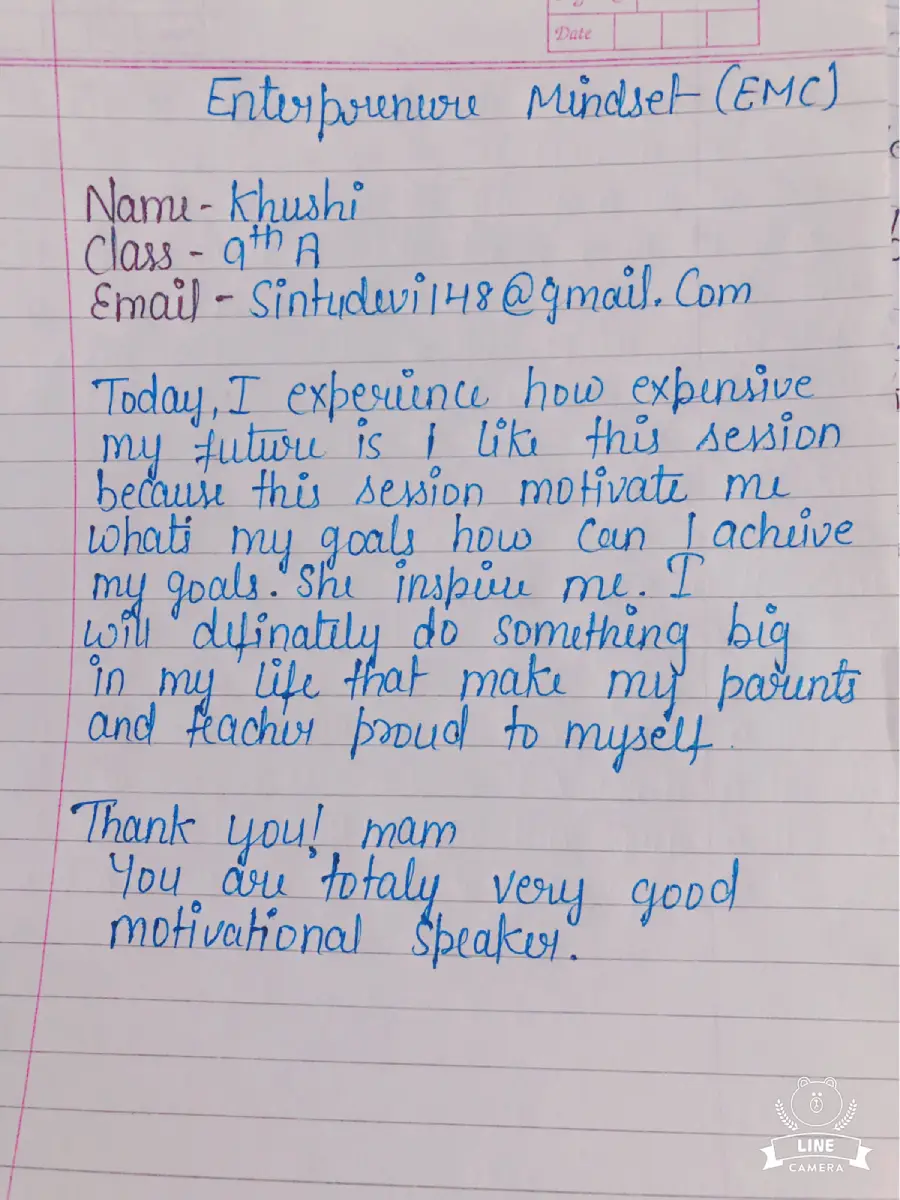 Date
Enterpreneure Mindset (EMC)
Name - Khushi
Class - 9th A
Email - Sintudevi148@gmail.Com
Today, I experience how expensive
my future is I like this session
because this session motivate me
whats my goals how can I acheive
my goals. She inspire me. I
will definately do something big
in my life that make my parents
and teacher proud to myself.
Thank you! mam
You are totaly very good
motivational speaker.
LINE
CAMERA